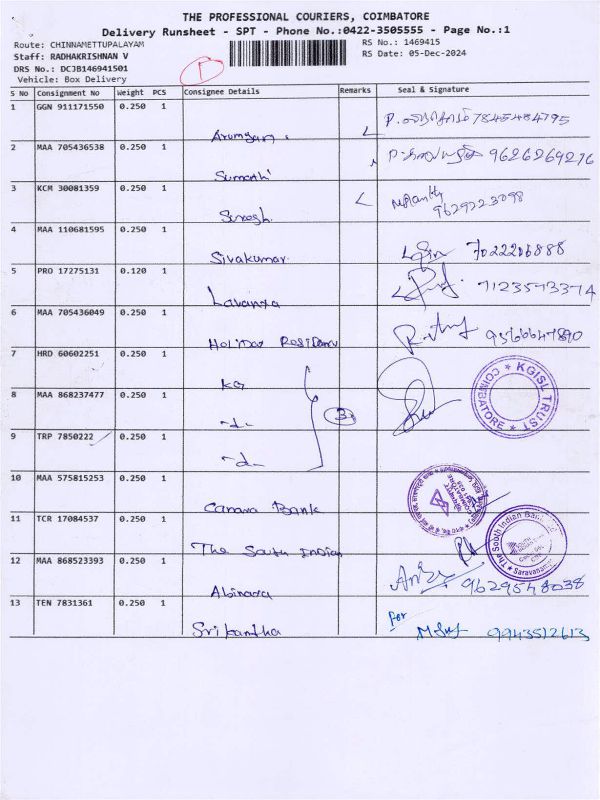 THE PROFESSIONAL COURIERS, COIMBATORE
Delivery Runsheet - SPT - Phone No.:0422-3505555 - Page No.:1
Route: CHINNAMETTUPALAYAM
RS No.: 1469415
Staff: RADHAKRISHNAN V
RS Date: 05-Dec-2024
DRS No.: DCJB146941501
Vehicle: Box Delivery
S No Consignment No Weight PCS Consignee Details Remarks Seal & Signature
1 GGN 911171550 0.250 1 Arumugam 7845484795
2 MAA 705436538 0.250 1 Sumathi 9626269276
3 KCM 30081359 0.250 1 Suresh 9629223098
4 MAA 110681595 0.250 1 Sivakumar 7022206888
5 PRO 17275131 0.120 1 Lavanya 7123573374
6 MAA 705436049 0.250 1 9566647890
7 HRD 60602251 0.250 1 KG
KGISL TRUST * COIMBATORE *
8 MAA 868237477 0.250 1 -d- 3
9 TRP 7850222 0.250 1 -d-
10 MAA 575815253 0.250 1 Canara Bank
11 TCR 17084537 0.250 1 The South Indian
The South Indian Bank
12 MAA 868523393 0.250 1 9629548038
13 TEN 7831361 0.250 1 Srikantha for 9943512613